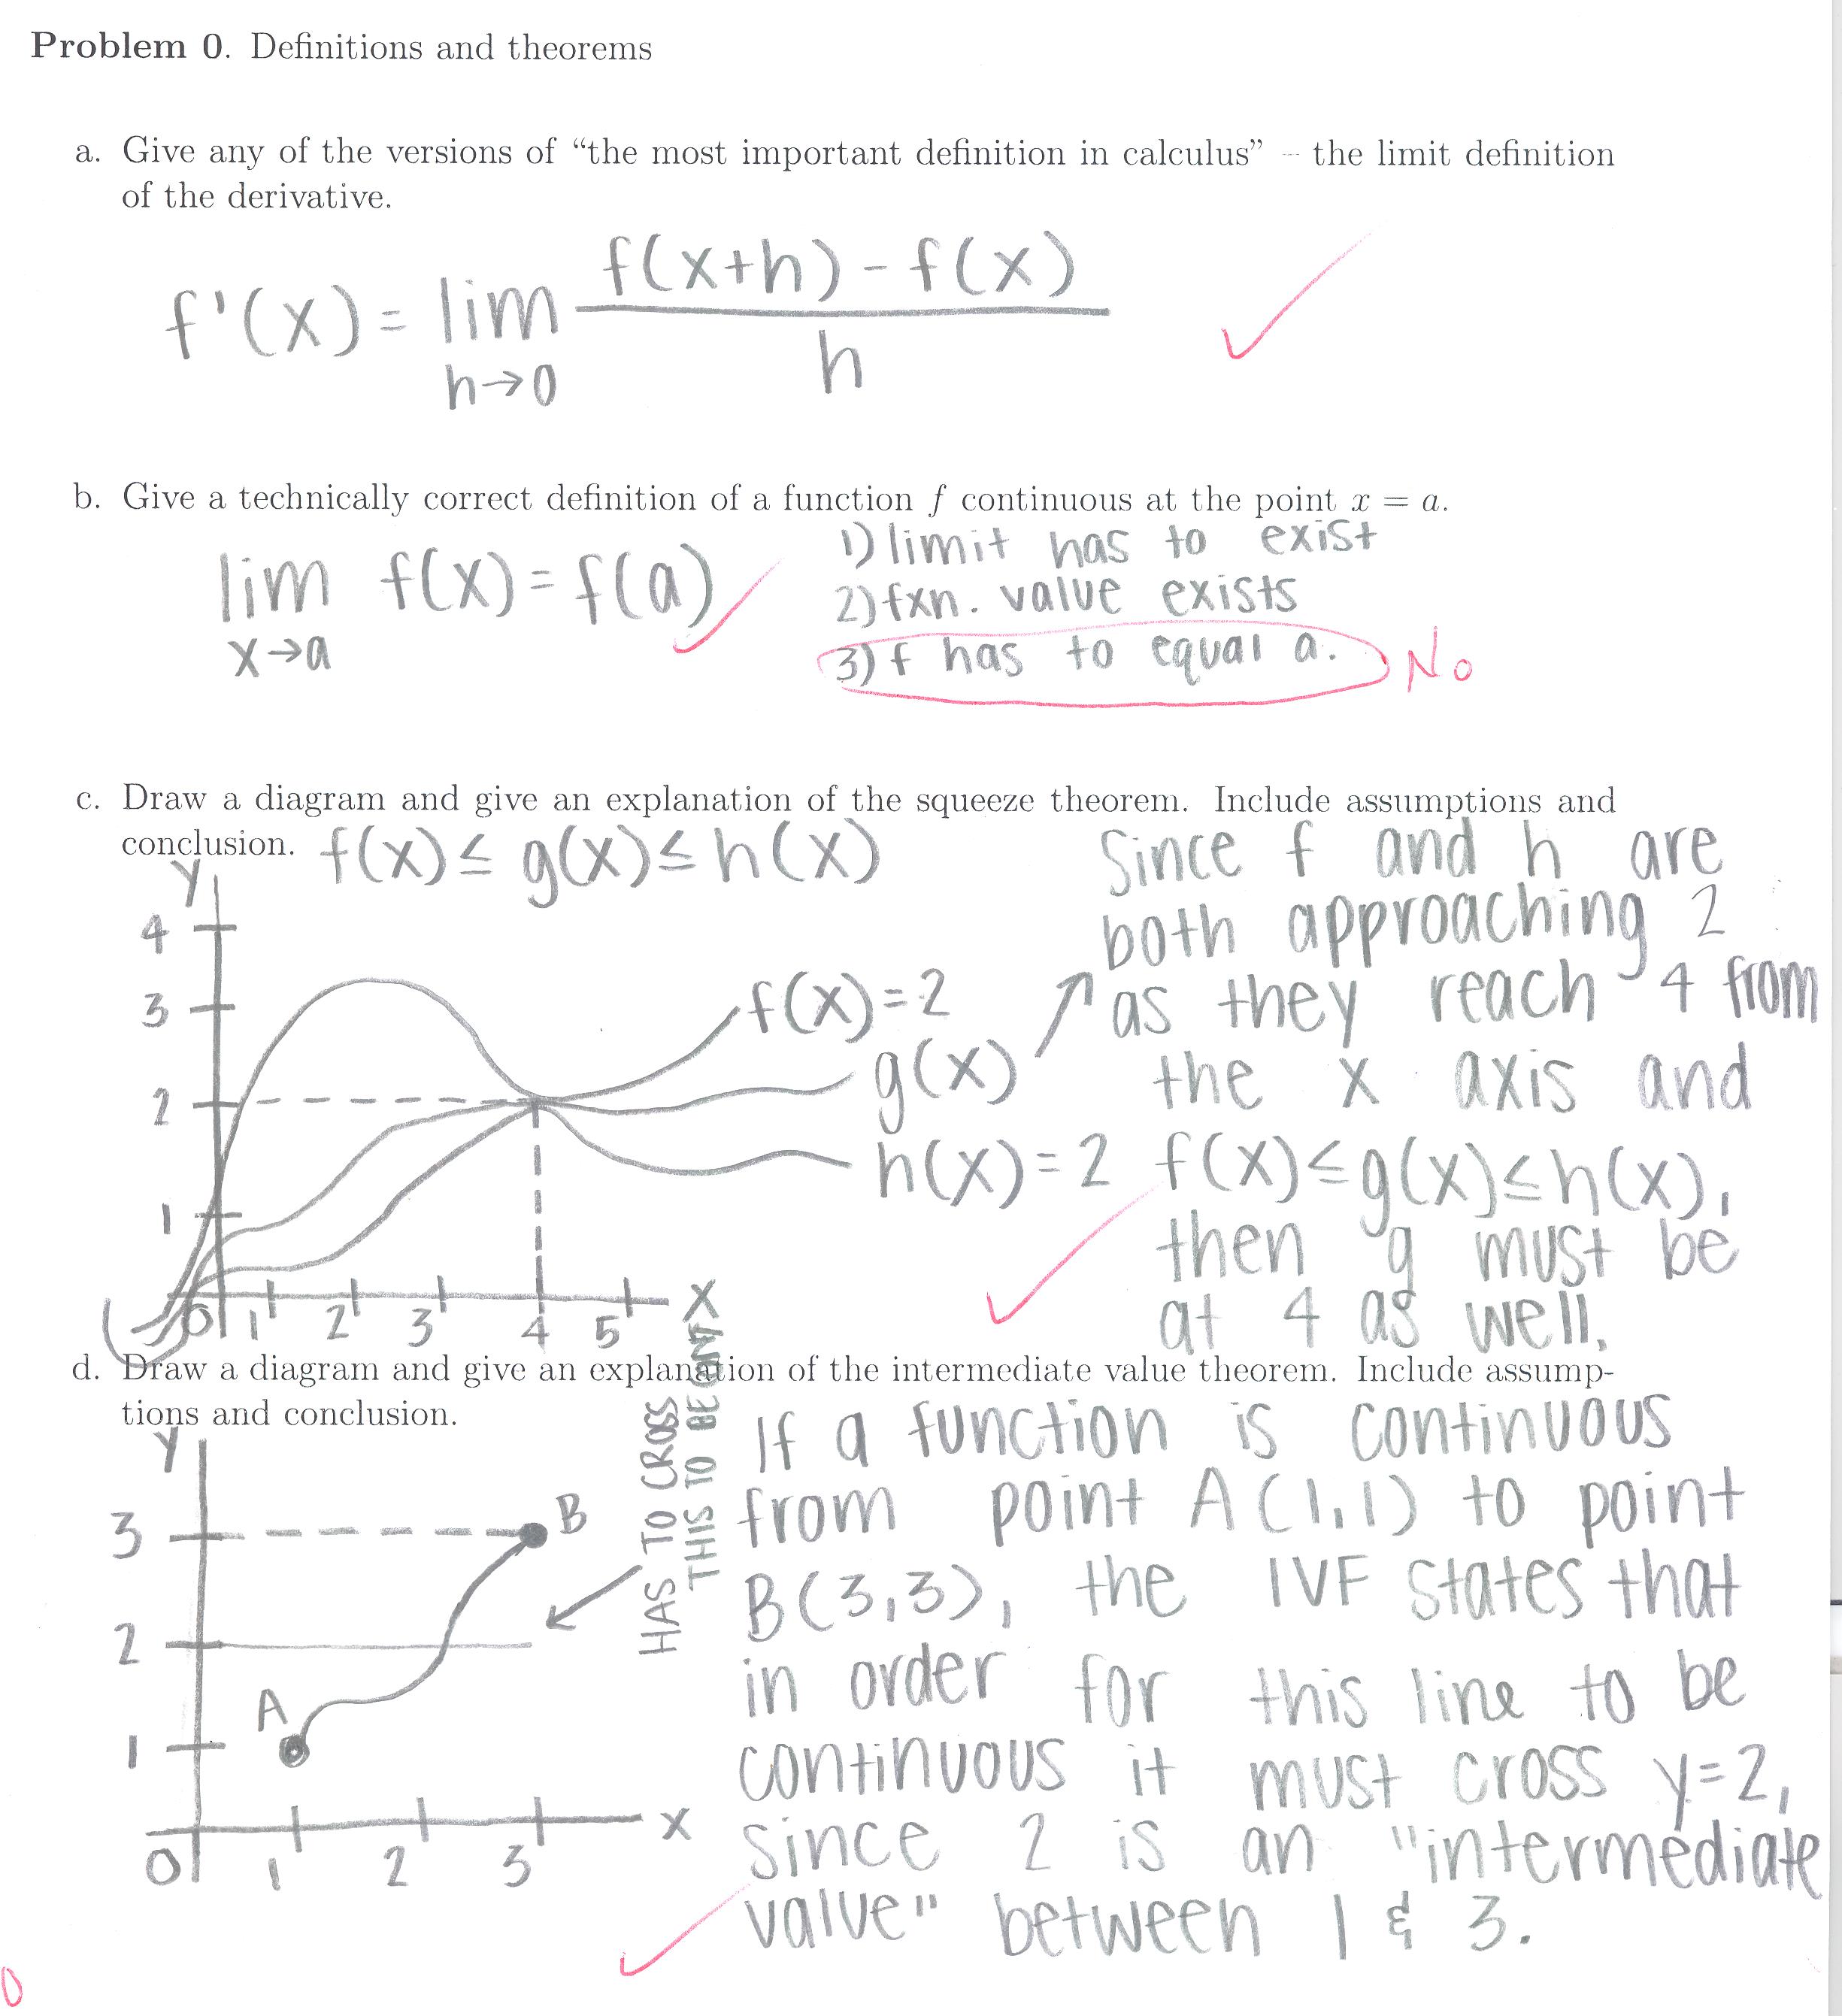 Problem 0. Definitions and theorems
a. Give any of the versions of “the most important definition in calculus” – the limit definition
of the derivative.
f'(x) = lim h→0 f(x+h) - f(x) / h
b. Give a technically correct definition of a function f continuous at the point x = a.
lim x→a f(x) = f(a)
1) limit has to exist
2) fxn. value exists
3) f has to equal a.
No
c. Draw a diagram and give an explanation of the squeeze theorem. Include assumptions and
conclusion.
f(x) ≤ g(x) ≤ h(x)
y
4
3
2
1
0 1 2 3 4 5
x
f(x)=2
g(x)
h(x)=2
Since f and h are
both approaching 2
as they reach 4 from
the x axis and
f(x) ≤ g(x) ≤ h(x),
then g must be
at 4 as well.
d. Draw a diagram and give an explanation of the intermediate value theorem. Include assump-
tions and conclusion.
y
3
2
1
0 1 2 3
x
A
B
HAS TO CROSS
THIS TO BE
If a function is continuous
from point A(1,1) to point
B(3,3), the IVF states that
in order for this line to be
continuous it must cross y=2,
since 2 is an "intermediate
value" between 1 & 3.
0